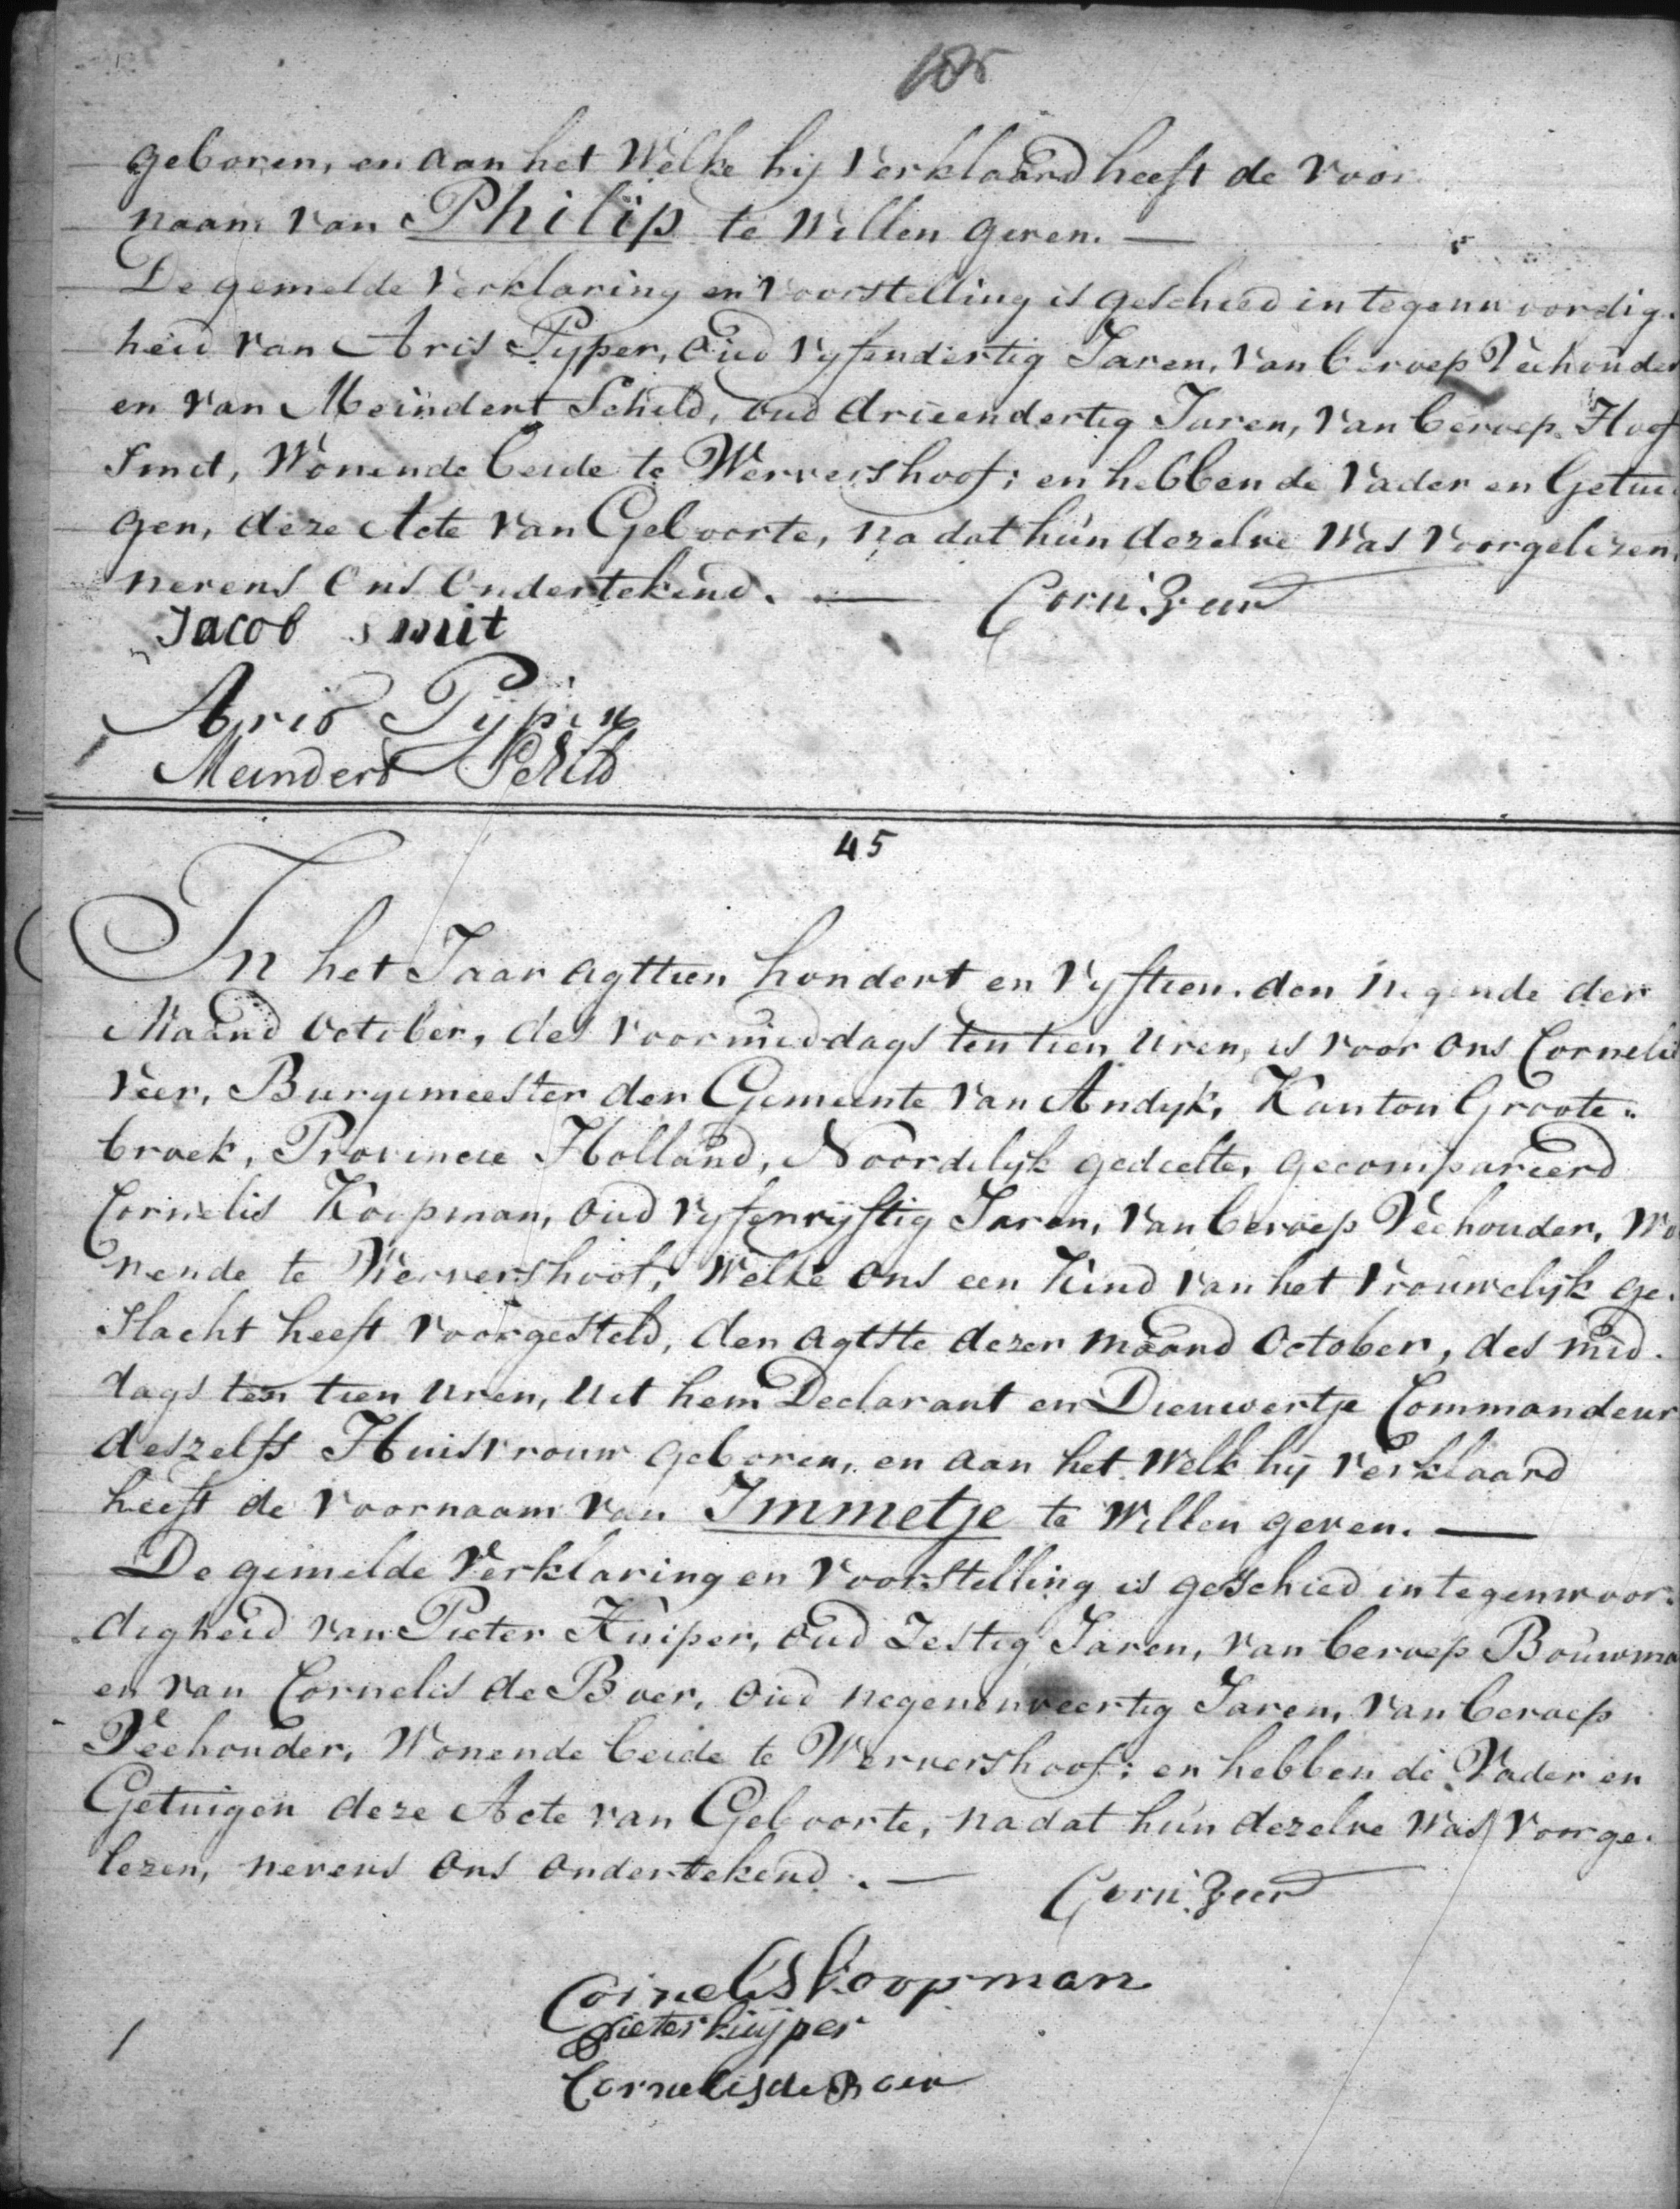 geboren, en aan het Welke hij Verklaard heeft de Voor
naam van Philip te Willen geven. —
De gemelde Verklaring en Voorstelling is geschied in tegenwoordig-
heid van Aris Pyper, Oud Vyfendertig Jaren, Van beroep Veehouder
en van Meindert Schild, oud drieendertig Jaren, Van beroep Hoef
Smit, Wonende beide te Wervershoof; en hebben de Vader en Getui
gen, deze Acte Van Geboorte, na dat hún dezelve Was Voorgelezen,
nevens Ons Ondertekend. — Corn: Veer
Jacob Smit
Aris Pijper
Meindert Schild
45
In het Jaar agttien hondert en Vyftien. den Negende der
Maand October, des Voormiddags ten tien Uren, is voor Ons Cornelis
Veer, Burgemeester der Gemeente Van Andyk, Kanton Groote-
broek, Provincie Holland, Noordelijk gedeelte, gecompareerd
Cornelis Koopman, Oud Vyfenvyftig Jaren, Van beroep Veehouder, Wo
nende te Wervershoof, Welke Ons een Kind Van het Vrouwelijk ge-
slacht heeft Voorgesteld, den agtste dezer maand October, des mid-
dags ten tien Uren, Uit hem Declarant en Dieuwertje Commandeur
deszelfs Huisvrouw geboren, en aan het Welk hij Verklaard
heeft de Voornaam Van Immetje te Willen geven. —
De gemelde Verklaring en Voorstelling is geschied in tegenwoor-
digheid van Pieter Kuiper, Oud Zestig Jaren, van beroep Bouwma
en van Cornelis de Boer, Oud negenenveertig Jaren, Van beroep
Veehouder, Wonende beide te Wervershoof; en hebben de Vader en
Getuigen deze Acte van Geboorte, na dat hún dezelve Was Voorge-
lezen, nevens Ons Ondertekend. — Corn: Veer
Cornelis Koopman
Pieter Kuijper
Cornelis de Boer